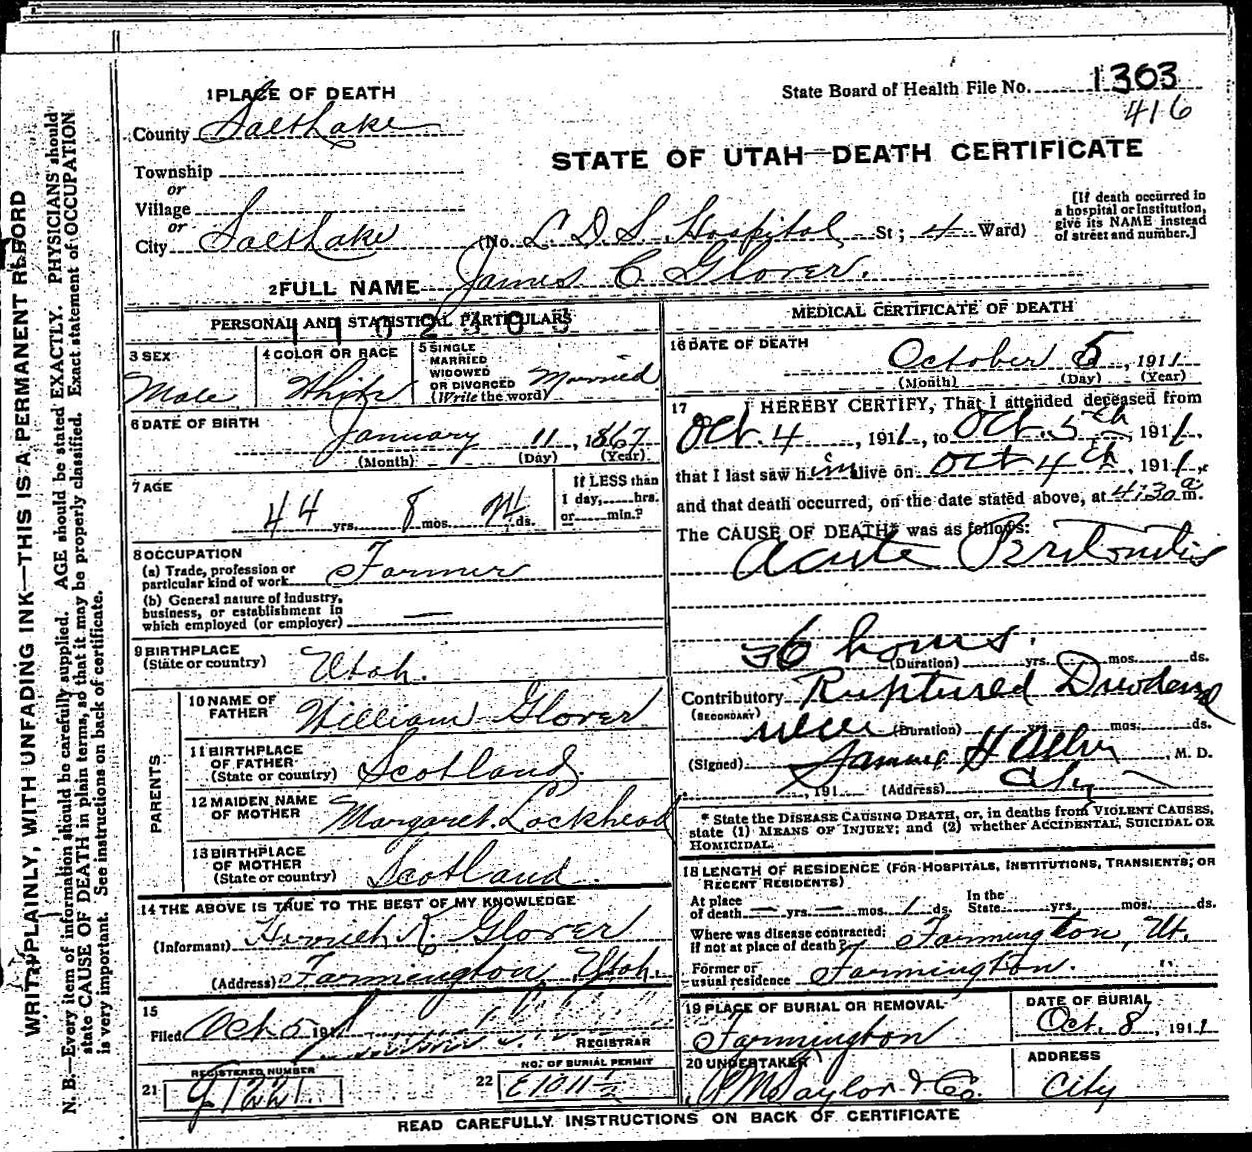 1 PLACE OF DEATH
State Board of Health File No. 1303
416
County Salt Lake
STATE OF UTAH—DEATH CERTIFICATE
Township
or
Village
or
City Salt Lake (No. L D S Hospital St; 4 Ward)
[If death occurred in
a hospital or institution,
give its NAME instead
of street and number.]
2 FULL NAME James C Glover.
PERSONAL AND STATISTICAL PARTICULARS
1 1 0 2 3 0 3
3 SEX
Male
4 COLOR OR RACE
White
5 SINGLE
MARRIED
WIDOWED
OR DIVORCED
(Write the word) Married
6 DATE OF BIRTH
January 11, 1867
(Month) (Day) (Year)
7 AGE
44 yrs. 8 mos. ds.
If LESS than
1 day, hrs.
or min.?
8 OCCUPATION
(a) Trade, profession or
particular kind of work Farmer
(b) General nature of industry,
business, or establishment in
which employed (or employer) —
9 BIRTHPLACE
(State or country) Utah.
PARENTS
10 NAME OF
FATHER William Glover
11 BIRTHPLACE
OF FATHER
(State or country) Scotland
12 MAIDEN NAME
OF MOTHER Margaret Lockhead
13 BIRTHPLACE
OF MOTHER
(State or country) Scotland.
14 THE ABOVE IS TRUE TO THE BEST OF MY KNOWLEDGE
(Informant) K. Glover
(Address) Farmington Utah.
15
Filed Oct 5 191
REGISTRAR
REGISTERED NUMBER
21
NO. OF BURIAL PERMIT
22 E1011½
MEDICAL CERTIFICATE OF DEATH
16 DATE OF DEATH
October 5, 1911
(Month) (Day) (Year)
17 I HEREBY CERTIFY, That I attended deceased from
Oct. 4, 1911, to Oct. 5th, 1911,
that I last saw him alive on Oct 4th, 1911,
and that death occurred, on the date stated above, at 4:30 a m.
The CAUSE OF DEATH* was as follows:
Acute Peritonitis
36 hours.
(Duration) yrs. mos. ds.
Contributory Ruptured Duodenal
(SECONDARY)
ulcer (Duration) yrs. mos. ds.
(Signed) Samuel H Allen, M. D.
, 191 (Address) City
* State the DISEASE CAUSING DEATH, or, in deaths from VIOLENT CAUSES,
state (1) MEANS OF INJURY; and (2) whether ACCIDENTAL, SUICIDAL OR
HOMICIDAL.
18 LENGTH OF RESIDENCE (FOR HOSPITALS, INSTITUTIONS, TRANSIENTS, OR
RECENT RESIDENTS)
At place
of death — yrs. — mos. 1 ds.
In the
State yrs. mos. ds.
Where was disease contracted;
if not at place of death? Farmington, Ut.
Former or
usual residence Farmington.
19 PLACE OF BURIAL OR REMOVAL
Farmington
DATE OF BURIAL
Oct. 8, 1911
20 UNDERTAKER
Taylor & Co.
ADDRESS
City
READ CAREFULLY INSTRUCTIONS ON BACK OF CERTIFICATE
WRITE PLAINLY, WITH UNFADING INK—THIS IS A PERMANENT RECORD
N. B.—Every item of information should be carefully supplied. AGE should be stated EXACTLY. PHYSICIANS should
state CAUSE OF DEATH in plain terms, so that it may be properly classified. Exact statement of OCCUPATION
is very important. See instructions on back of certificate.